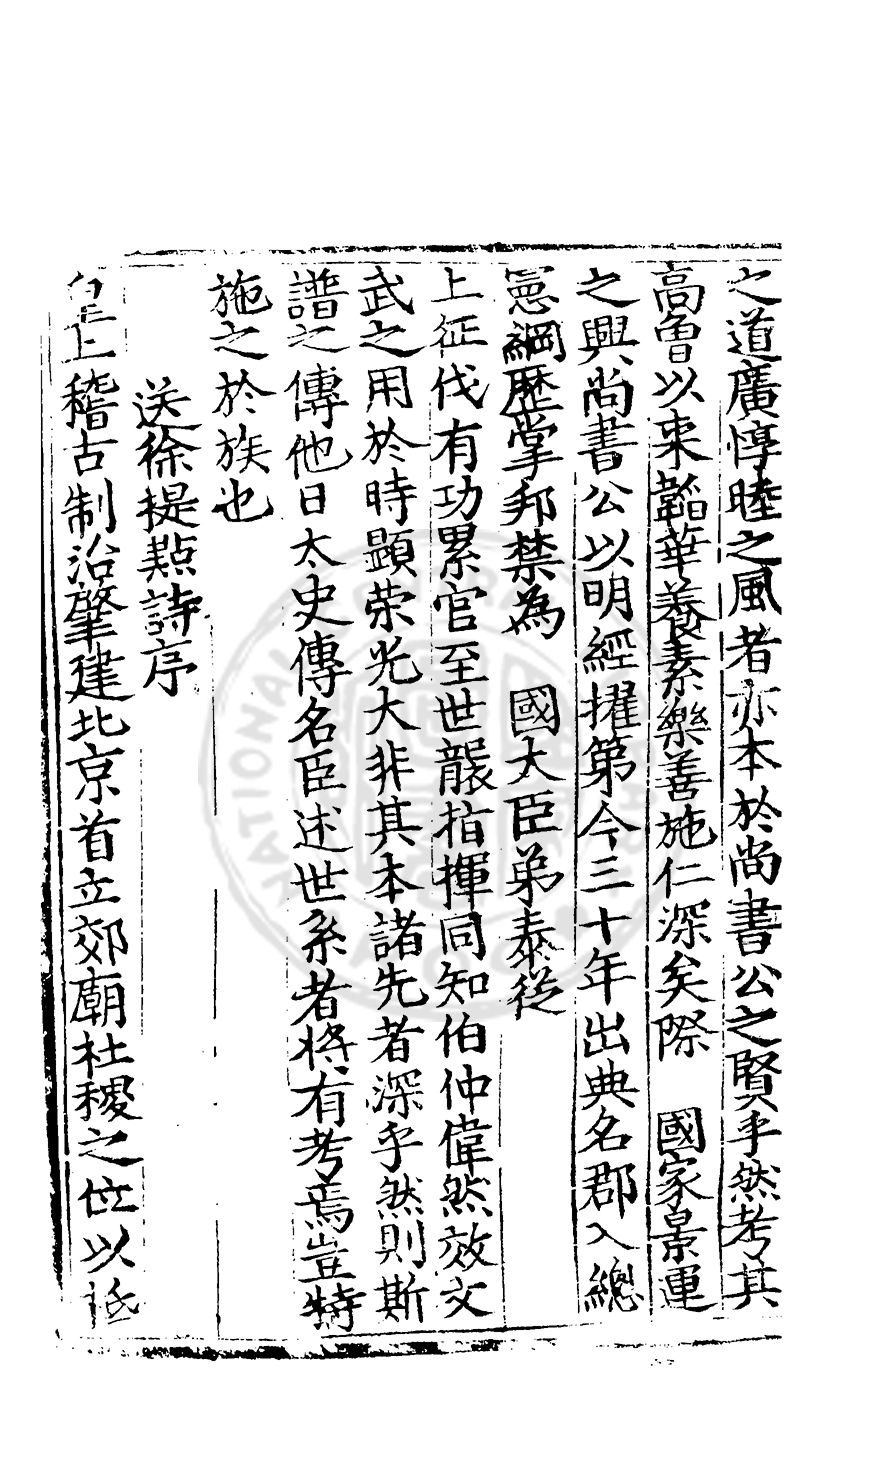 之道廣惇睦之風者亦本於尚書公之賢乎然考其
高曾以來韜華養素樂善施仁深矣際　國家景運
之興尚書公以明經擢第今三十年出典名郡入總
憲綱歷掌邦禁為　國大臣弟泰從
上征伐有功累官至世襲指揮同知伯仲偉然效文
武之用於時顯荣光大非其本諸先者深乎然則斯
譜之傳他日太史傳名臣述世系者將有考焉豈特
施之於族也
送徐提點詩序
皇上稽古制治肇建北京首立郊廟社稷之位以祗
NATIONAL